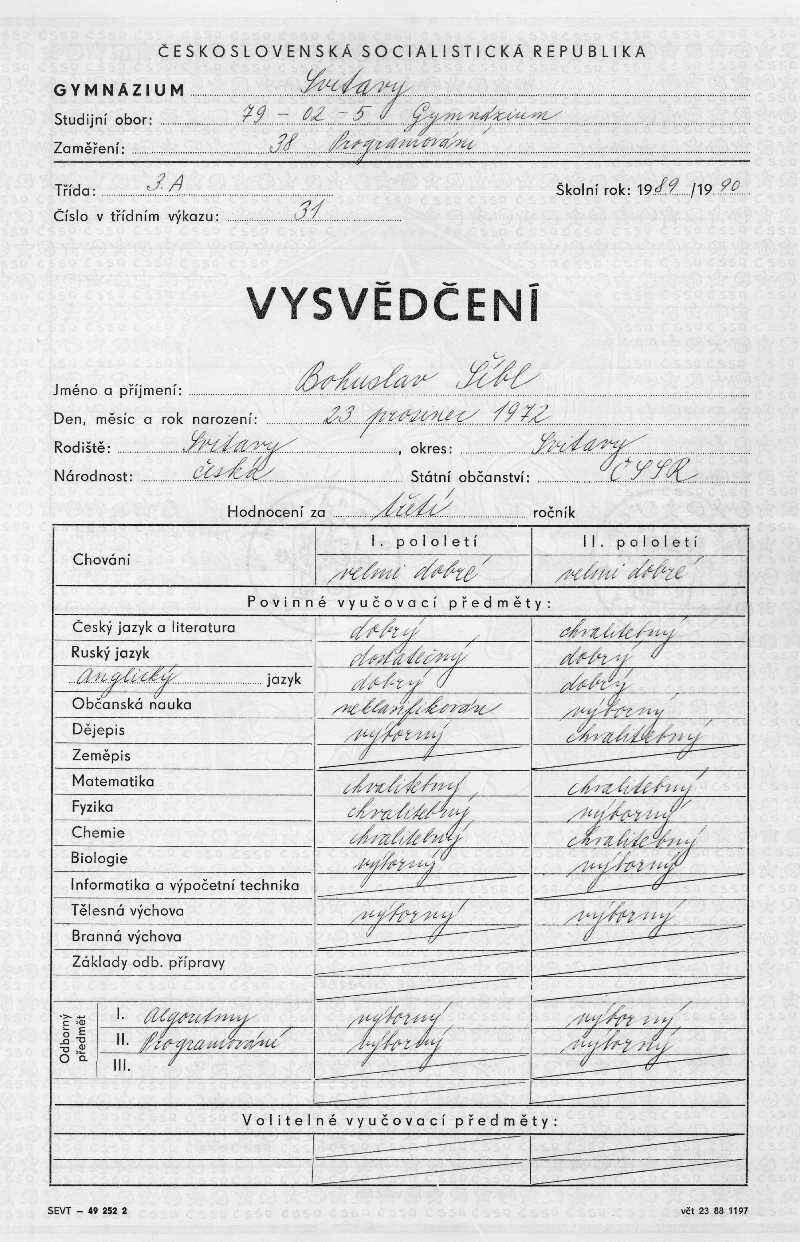 ČESKOSLOVENSKÁ SOCIALISTICKÁ REPUBLIKA
GYMNÁZIUM Svitavy
Studijní obor: 79 - 02 - 5 Gymnázium
Zaměření: 38 Programování
Třída: 3. A Školní rok: 1989/1990
Číslo v třídním výkazu: 31
VYSVĚDČENÍ
Jméno a příjmení: Bohuslav Šíbl
Den, měsíc a rok narození: 23 prosinec 1972
Rodiště: Svitavy, okres: Svitavy
Národnost: česká Státní občanství: ČSSR
Hodnocení za třetí ročník
Chování I. pololetí II. pololetí
velmi dobré velmi dobré
Povinné vyučovací předměty:
Český jazyk a literatura dobrý chvalitebný
Ruský jazyk dostatečný dobrý
Anglický jazyk dobrý dobrý
Občanská nauka neklasifikován výborný
Dějepis výborný chvalitebný
Zeměpis
Matematika chvalitebný chvalitebný
Fyzika chvalitebný výborný
Chemie chvalitebný chvalitebný
Biologie výborný výborný
Informatika a výpočetní technika
Tělesná výchova výborný výborný
Branná výchova
Základy odb. přípravy
Odborný předmět
I. Algoritmy výborný výborný
II. Programování výborný výborný
III.
Volitelné vyučovací předměty:
SEVT – 49 252 2 včt 23 88 1197